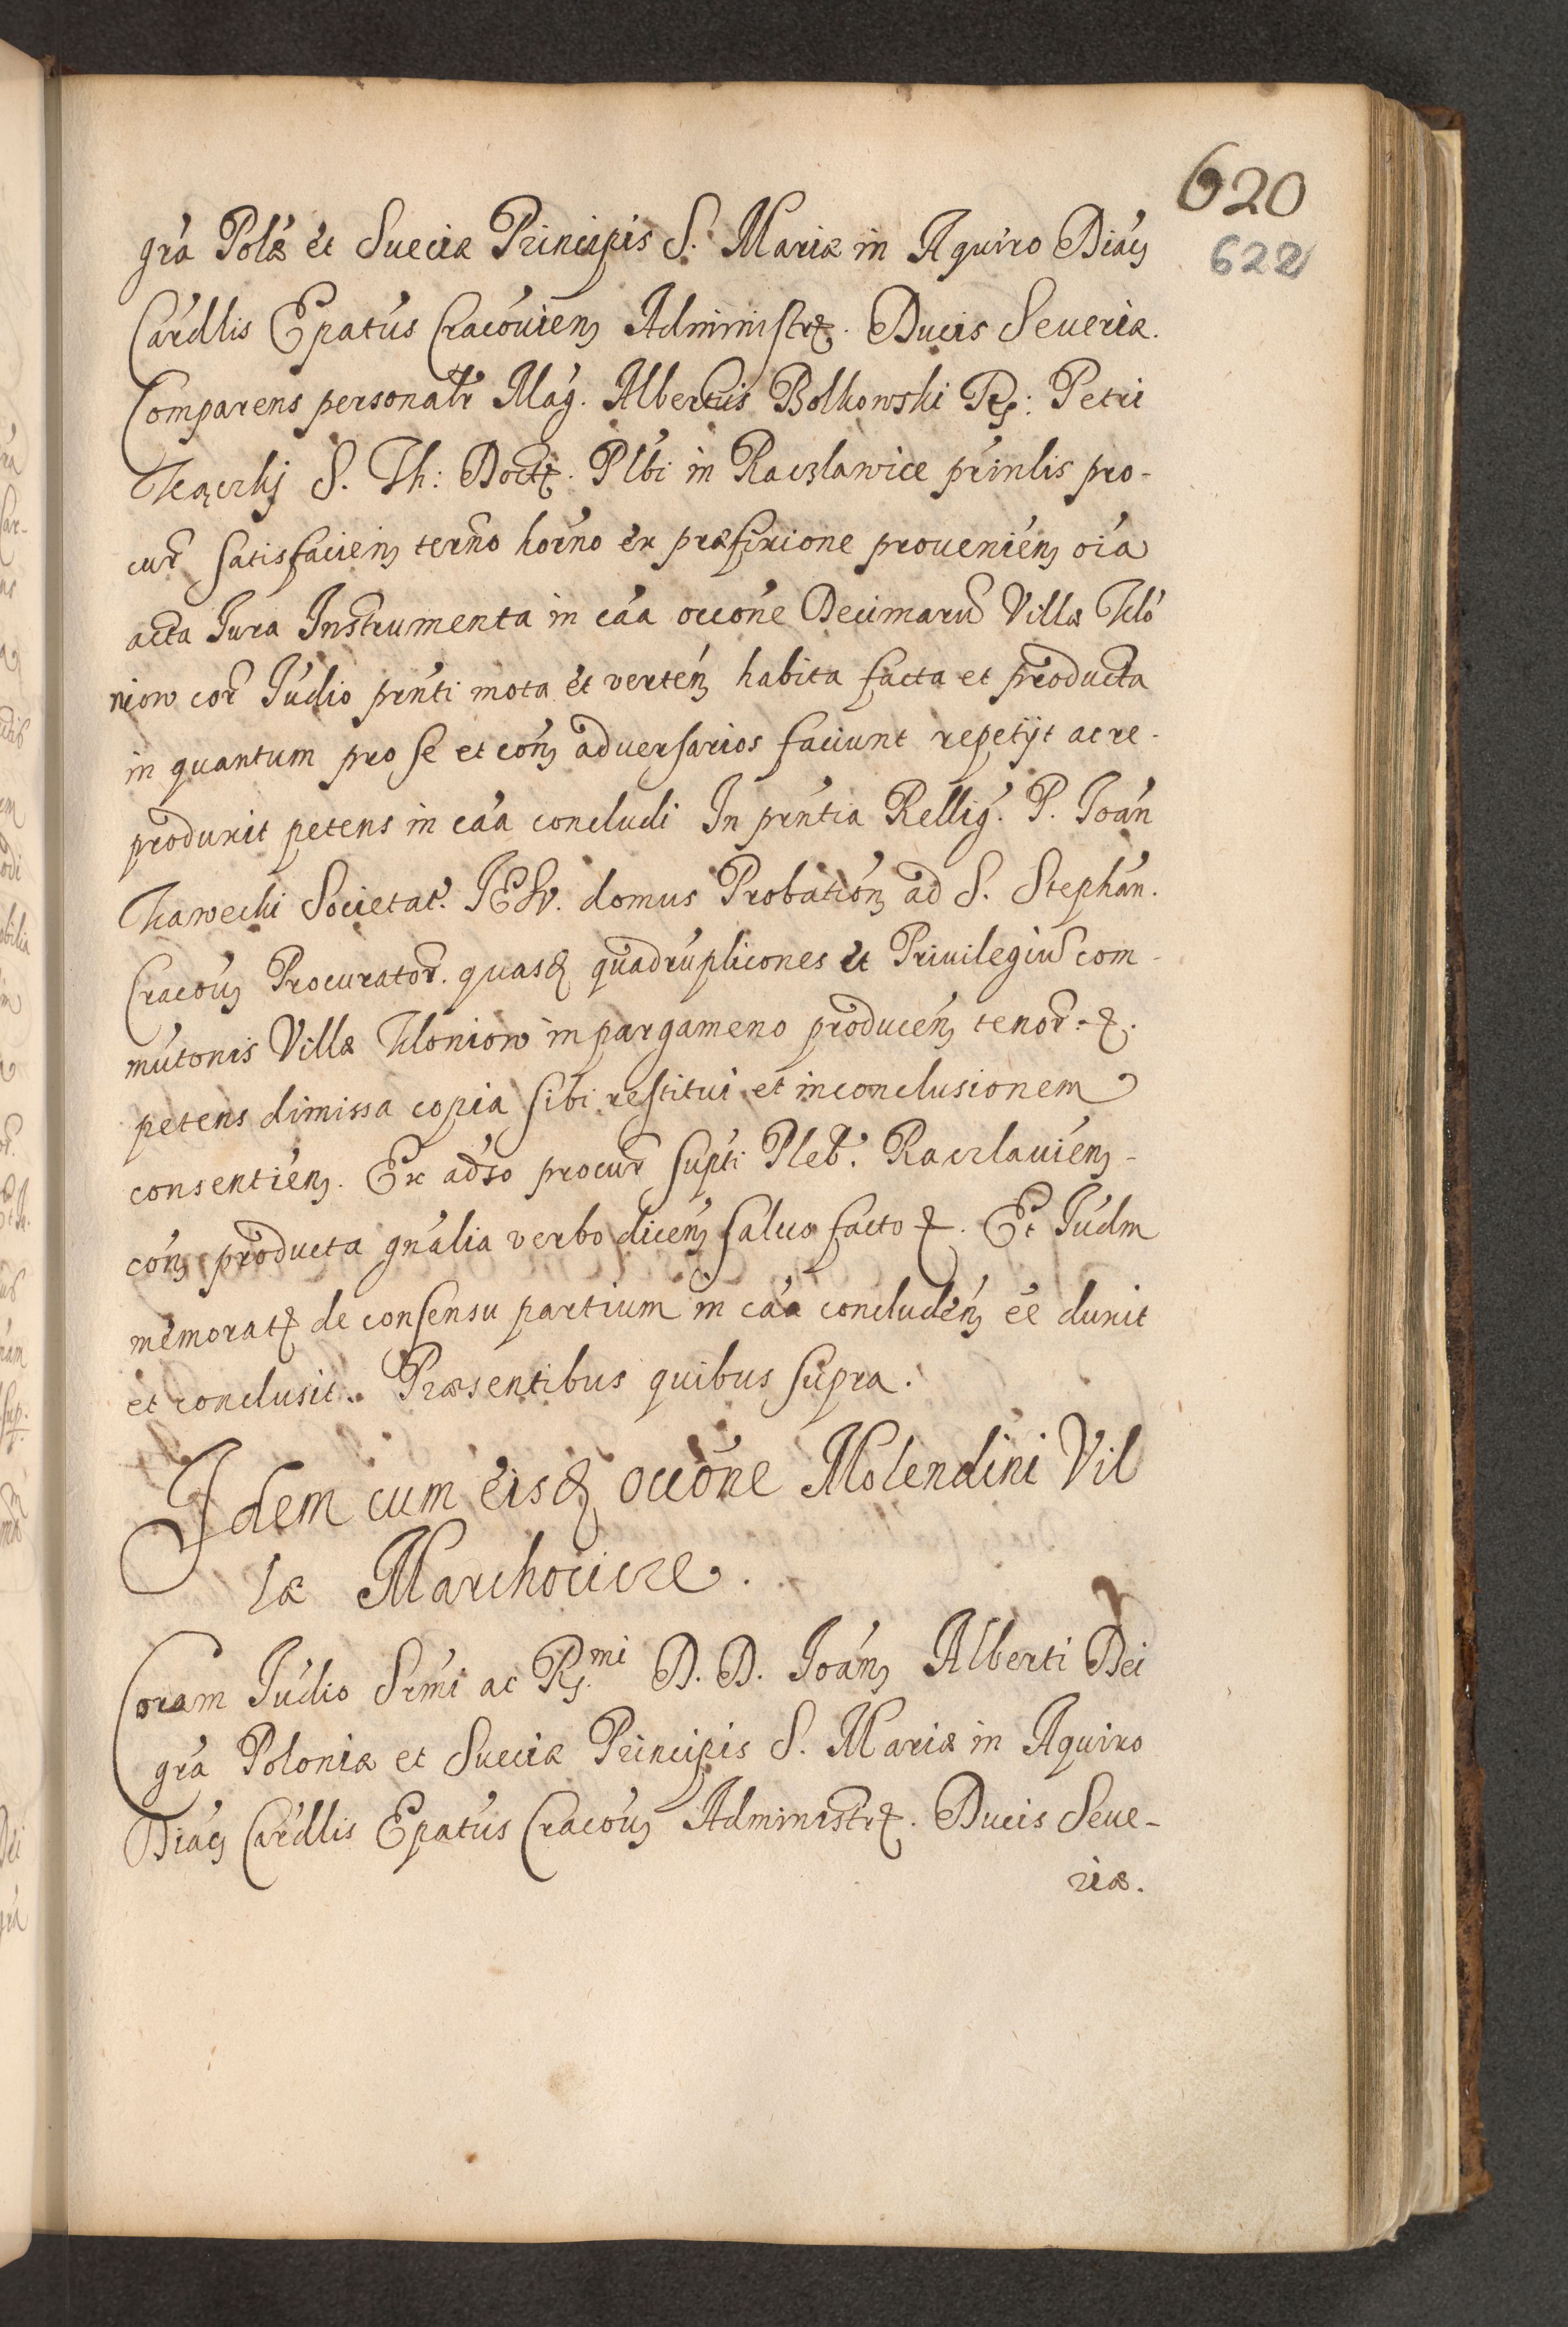 620
622
grã Polæ et Sueciæ Principis S. Mariæ in Aquiro Diacꝫ
Cardllis Epatus Cracouienꝫ Administrꝭ. Ducis Seueriæ.
Comparens personalr Mag. Albertus Bolkowski Rꝭ: Petri
S. Th: Doctꝭ. Plbi in Raczlawice prinlis pro-
cur satisfacienꝫ termo horno ex præfixione prouenienꝫ oia
acta Jura Instrumenta in caa occone Decimaru Villæ Klo
niow cor Judio prnti mota et vertenꝫ habita facta et producta
in quantum pro se et conꝫ aduersarios faciunt repetijt ac re-
produxit petens in caa concludi In prntia Rellig. P. Joan
Societat. JESV. domus Probationꝫ ad S. Stephan.
Cracouꝫ Procurator. quasꝗ quadruplicones et Priuilegiu com-
mutonis Villæ Kloniow in pargameno producenꝫ tenor. ꝛ.
petens dimissa copia sibi restitui et in conclusionem
consentienꝫ. Ex aduerso procur supti Pleb. Raczlauienꝫ -
conꝫ producta gnalia verbo dicenꝫ saluo facto ꝛ. Et Judm
memoratꝭ de consensu partium in caa concludenꝫ ee duxit
et conclusit. Præsentibus quibus supra.
Idem cum eisꝗ occone Molendini Vil
læ Marchocicze.
Coram Judio Srmi ac Rꝭ.mi D. D. Joanꝫ Alberti Dei
gra Poloniæ et Sueciæ Principis S. Mariæ in Aquiro
Diacꝫ Cardllis Epatus Cracouꝫ Administrꝭ. Ducis Seue-
riæ.